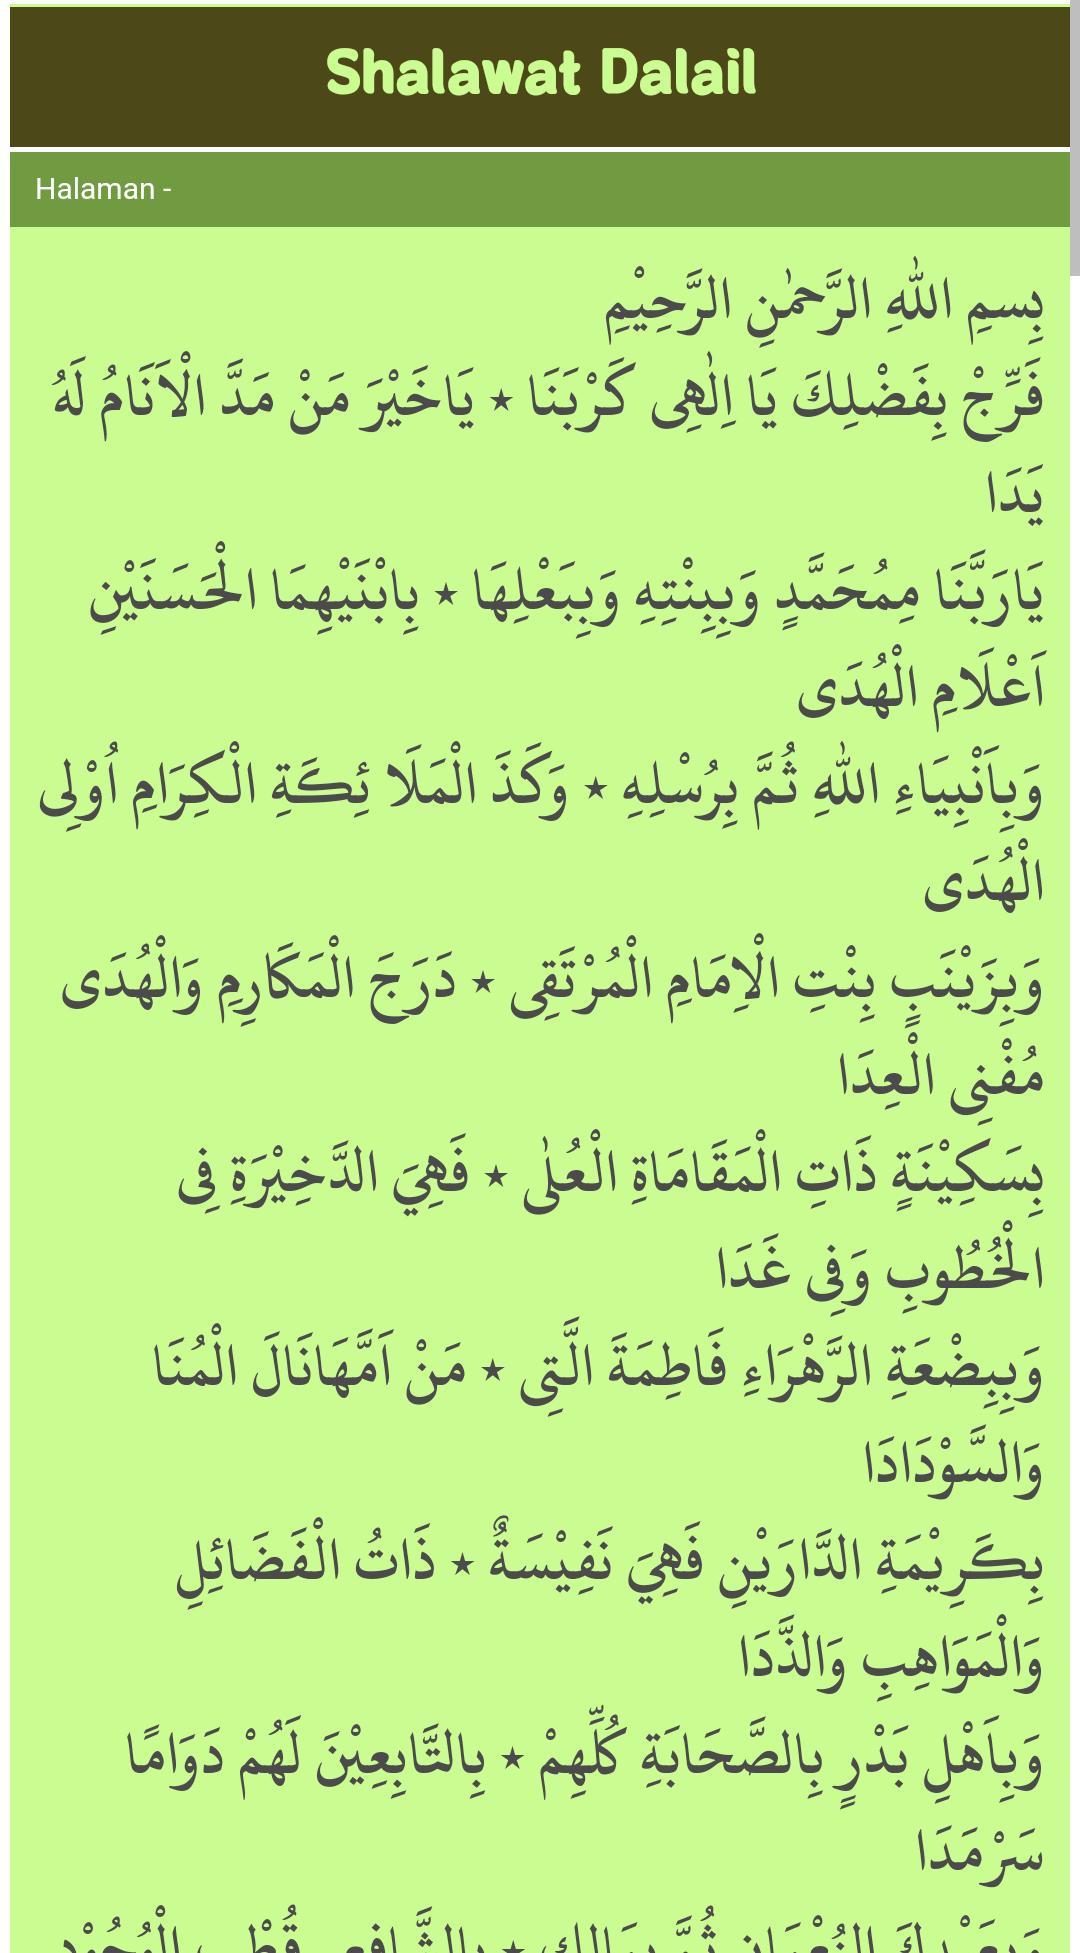 Shalawat Dalail
Halaman -
بِسمِ اللهِ الرَّحمٰنِ الرَّحِيْمِ
فَرِّجْ بِفَضْلِكَ يَا اِلٰهِى كَرْبَنَا ٭ يَاخَيْرَ مَنْ مَدَّ الْاَنَامُ لَهُ
يَدَا
يَارَبَّنَا مِمُحَمَّدٍ وَبِبِنْتِهِ وَبِبَعْلِهَا ٭ بِابْنَيْهِمَا الْحَسَنَيْنِ
اَعْلَامِ الْهُدَى
وَبِاَنْبِيَاءِ اللهِ ثُمَّ بِرُسْلِهِ ٭ وَكَذَ الْمَلَا ئِكَةِ الْكِرَامِ اُوْلِى
الْهُدَى
وَبِزَيْنَبٍ بِنْتِ الْاِمَامِ الْمُرْتَقِى ٭ دَرَجَ الْمَكَارِمِ وَالْهُدَى
مُفْنِى الْعِدَا
بِسَكِيْنَةٍ ذَاتِ الْمَقَامَاةِ الْعُلٰى ٭ فَهِيَ الدَّخِيْرَةِ فِى
الْخُطُوبِ وَفِى غَدَا
وَبِبِضْعَةِ الرَّهْرَاءِ فَاطِمَةَ الَّتِى ٭ مَنْ اَمَّهَانَالَ الْمُنَا
وَالسَّوْدَادَا
بِكَرِيْمَةِ الدَّارَيْنِ فَهِيَ نَفِيْسَةٌ ٭ ذَاتُ الْفَضَائِلِ
وَالْمَوَاهِبِ وَالذَّدَا
وَبِاَهْلِ بَدْرٍ بِالصَّحَابَةِ كُلِّهِمْ ٭ بِالتَّابِعِيْنَ لَهُمْ دَوَامًا
سَرْمَدَا